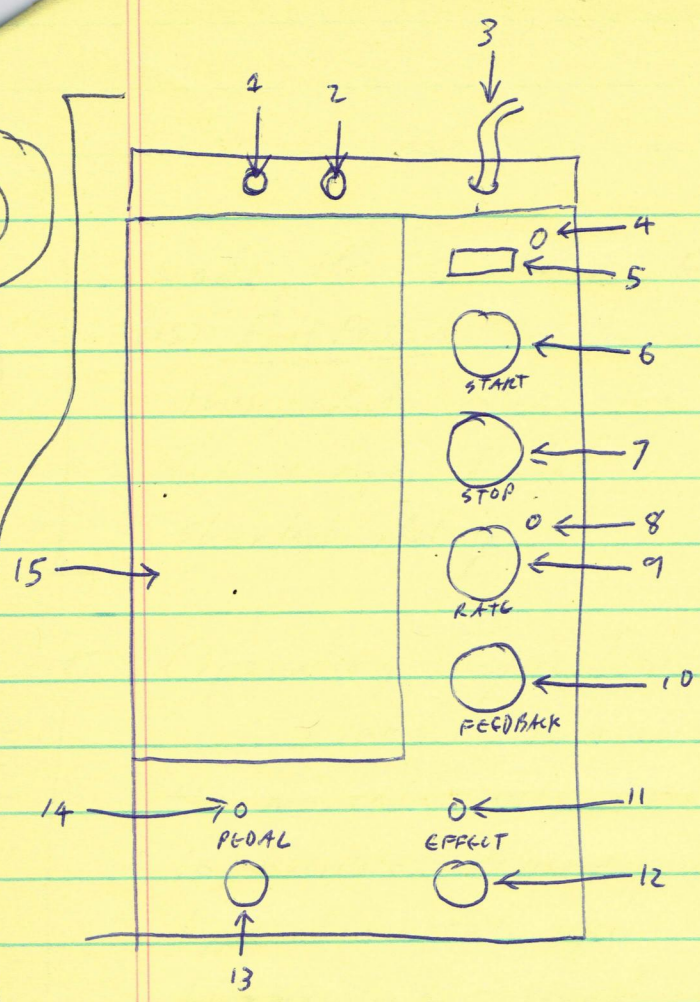 3
1 2
4
5
6
START
7
STOP
8
9
RATE
15
10
FEEDBACK
14 11
PEDAL EFFECT
12
13